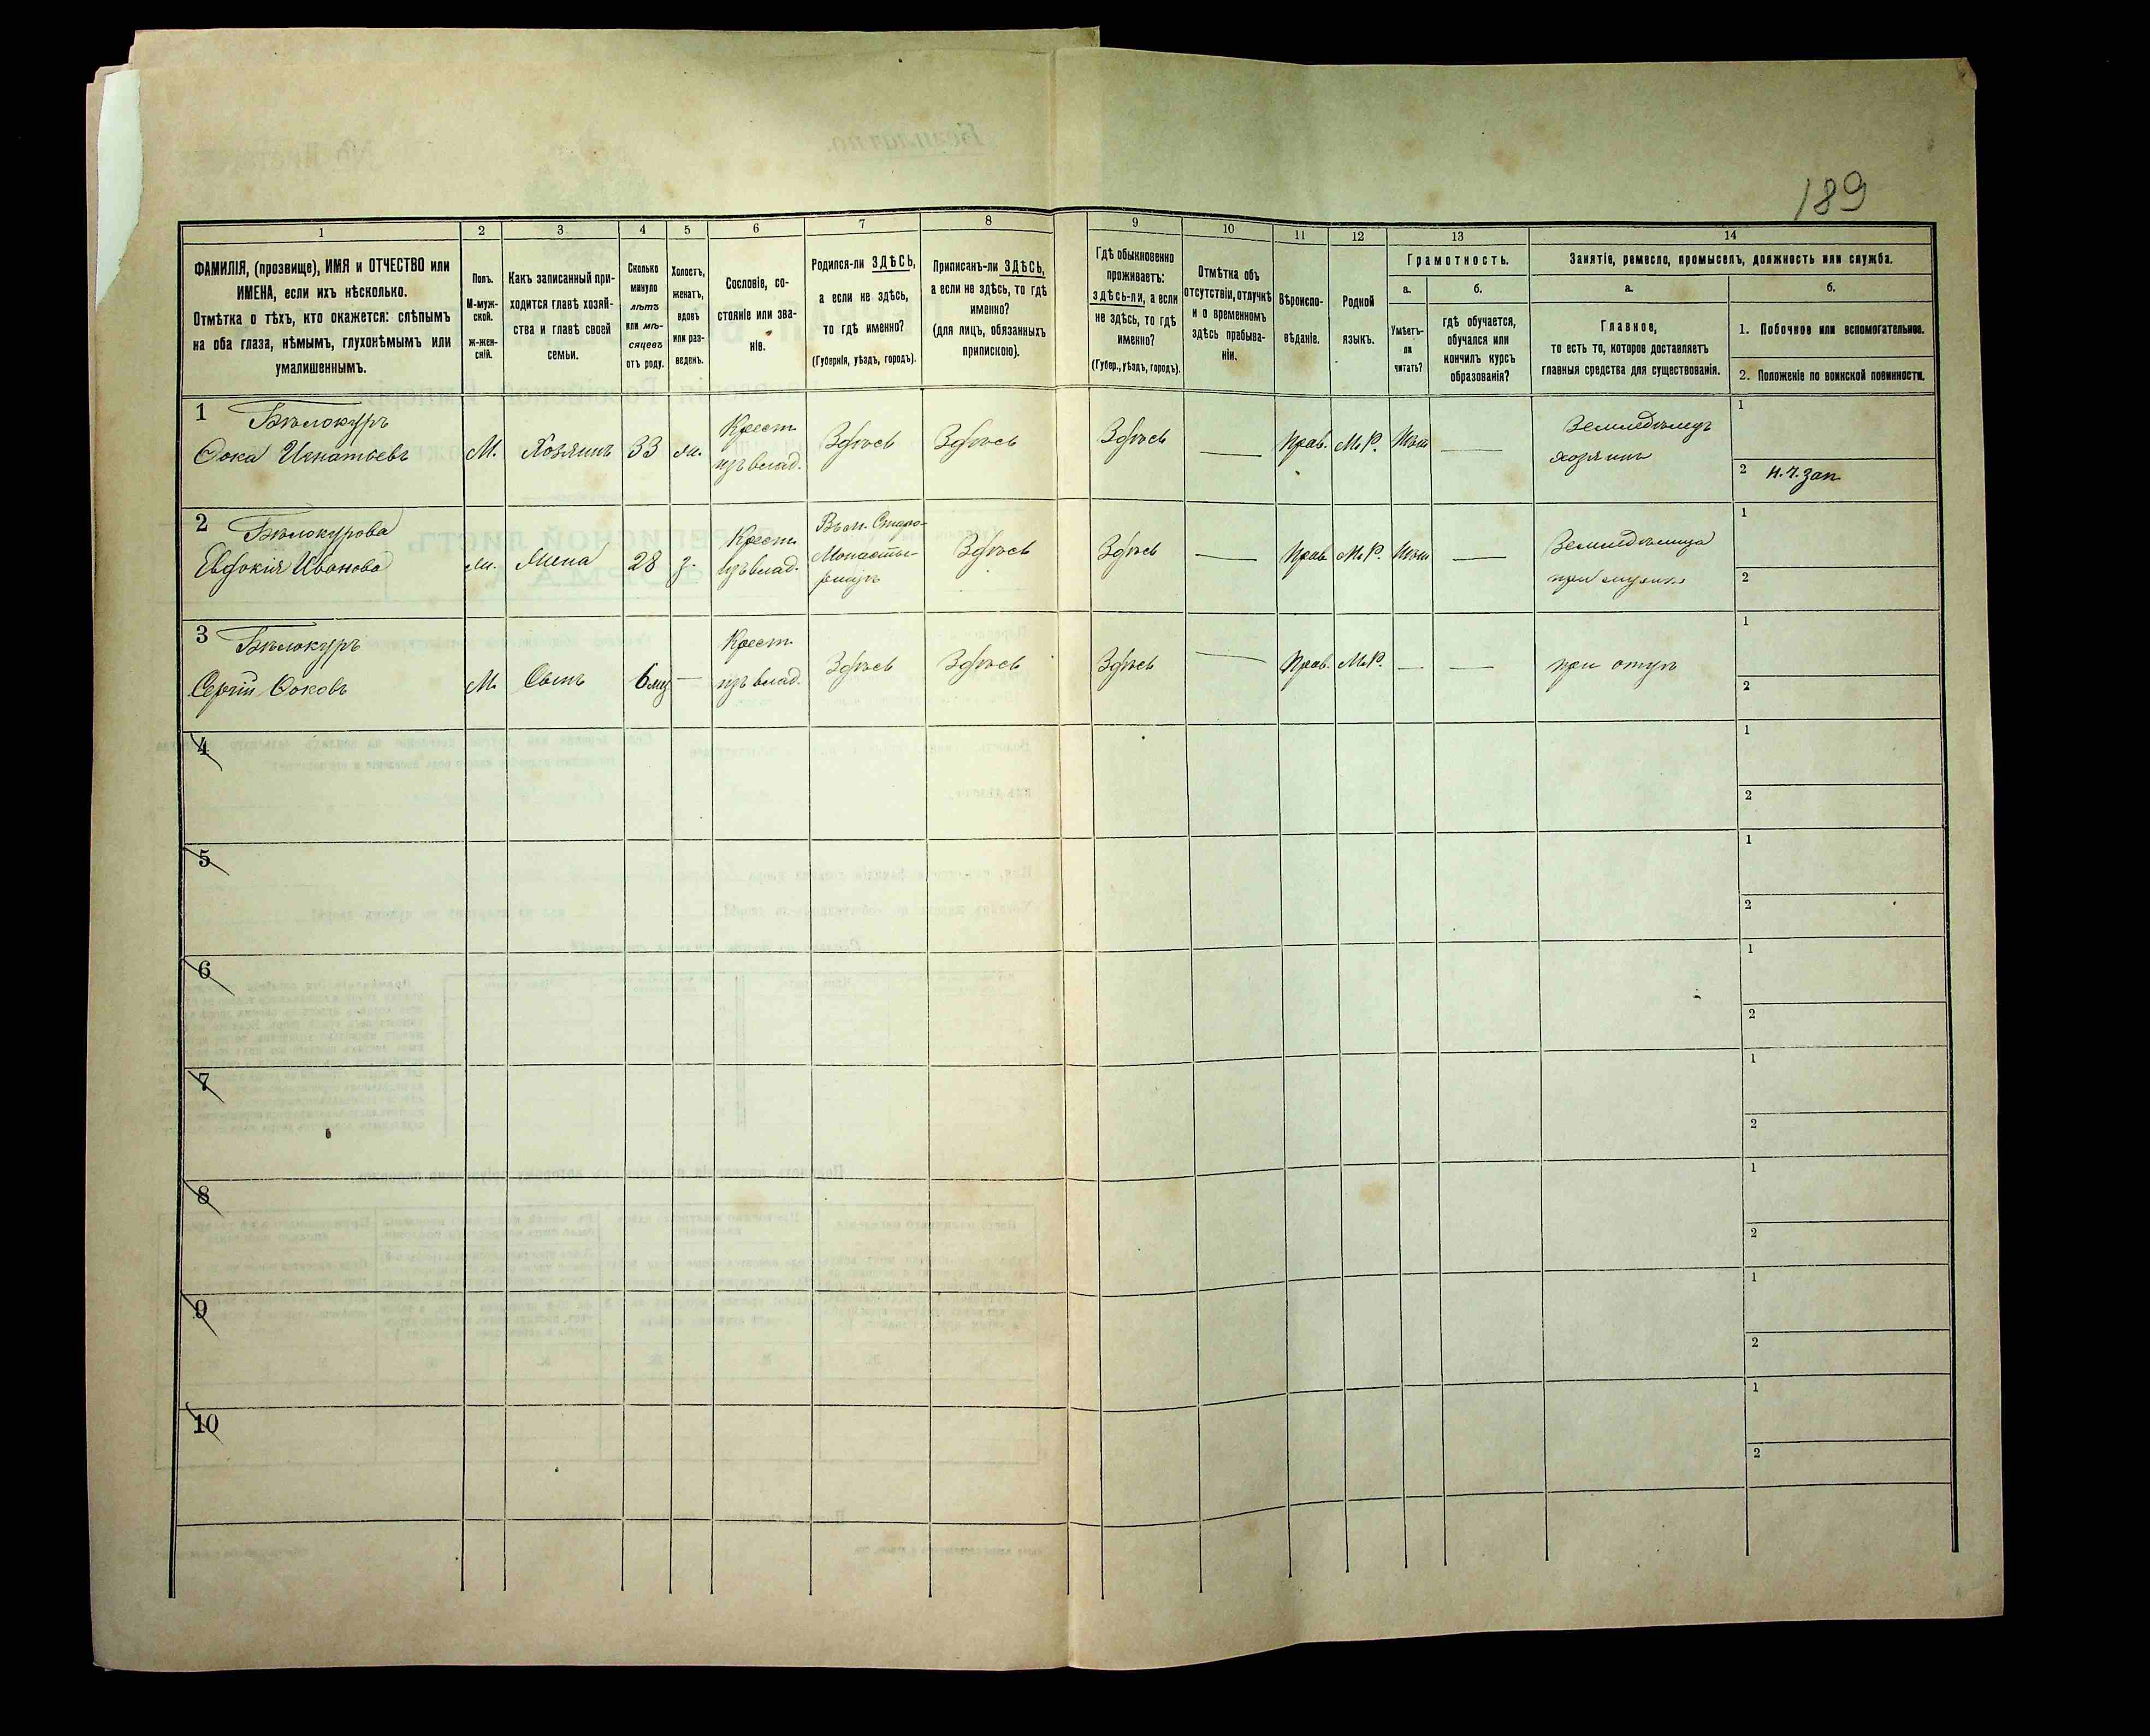 189
1 2 3 4 5 6 7 8 9 10 11 12 13 14
ФАМИЛІЯ, (прозвище), ИМЯ и ОТЧЕСТВО или
ИМЕНА, если ихъ нѣсколько.
Отмѣтка о тѣхъ, кто окажется: слѣпымъ
на оба глаза, нѣмымъ, глухонѣмымъ или
умалишеннымъ.
Полъ.
М-муж-
ской.
ж-жен-
скій.
Какъ записанный при-
ходится главѣ хозяй-
ства и главѣ своей
семьи.
Сколько
минуло
лѣтъ
или мѣ-
сяцевъ
отъ роду.
Холостъ,
женатъ,
вдовъ
или раз-
веденъ.
Сословіе, со-
стояніе или зва-
ніе.
Родился-ли ЗДѢСЬ,
а если не здѣсь,
то гдѣ именно?
(Губернія, уѣздъ, городъ).
Приписанъ-ли ЗДѢСЬ,
а если не здѣсь, то гдѣ
именно?
(для лицъ, обязанныхъ
припискою).
Гдѣ обыкновенно
проживаетъ:
здѣсь-ли, а если
не здѣсь, то гдѣ
именно?
(Губер., уѣздъ, городъ).
Отмѣтка объ
отсутствіи, отлучкѣ
и о временномъ
здѣсь пребыва-
ніи.
Вѣроиспо-
вѣданіе.
Родной
языкъ.
Грамотность.
а.
Умѣетъ-
ли
читать?
б.
гдѣ обучается,
обучался или
кончилъ курсъ
образованія?
Занятіе, ремесло, промыселъ, должность или служба.
а.
Главное,
то есть то, которое доставляетъ
главныя средства для существованія.
б.
1. Побочное или вспомогательное.
2. Положеніе по воинской повинности.
1 Бѣлокуръ
Ѳока Игнатьевъ М. Хозяинъ 33 ж.
Крест.
изъ влад.
Здѣсь Здѣсь Здѣсь — Прав. М.Р. Нѣт —
Земледѣлецъ
хозяинъ
1
2 Н. Ч. Зап.
2 Бѣлокурова
Евдокія Иванова ж. Жена 28 з.
Крест.
изъ влад.
Въ м. Старо-
Монасты-
рищѣ
Здѣсь Здѣсь — Прав. М.Р. Нѣт —
Земледѣлица
при мужѣ
1
2
3 Бѣлокуръ
Сергій Ѳоковъ М. Сынъ 6 мц —
Крест.
изъ влад.
Здѣсь Здѣсь Здѣсь — Прав. М.Р. — —
при отцѣ
1
2
4
1
2
5
1
2
6
1
2
7
1
2
8
1
2
9
1
2
10
1
2